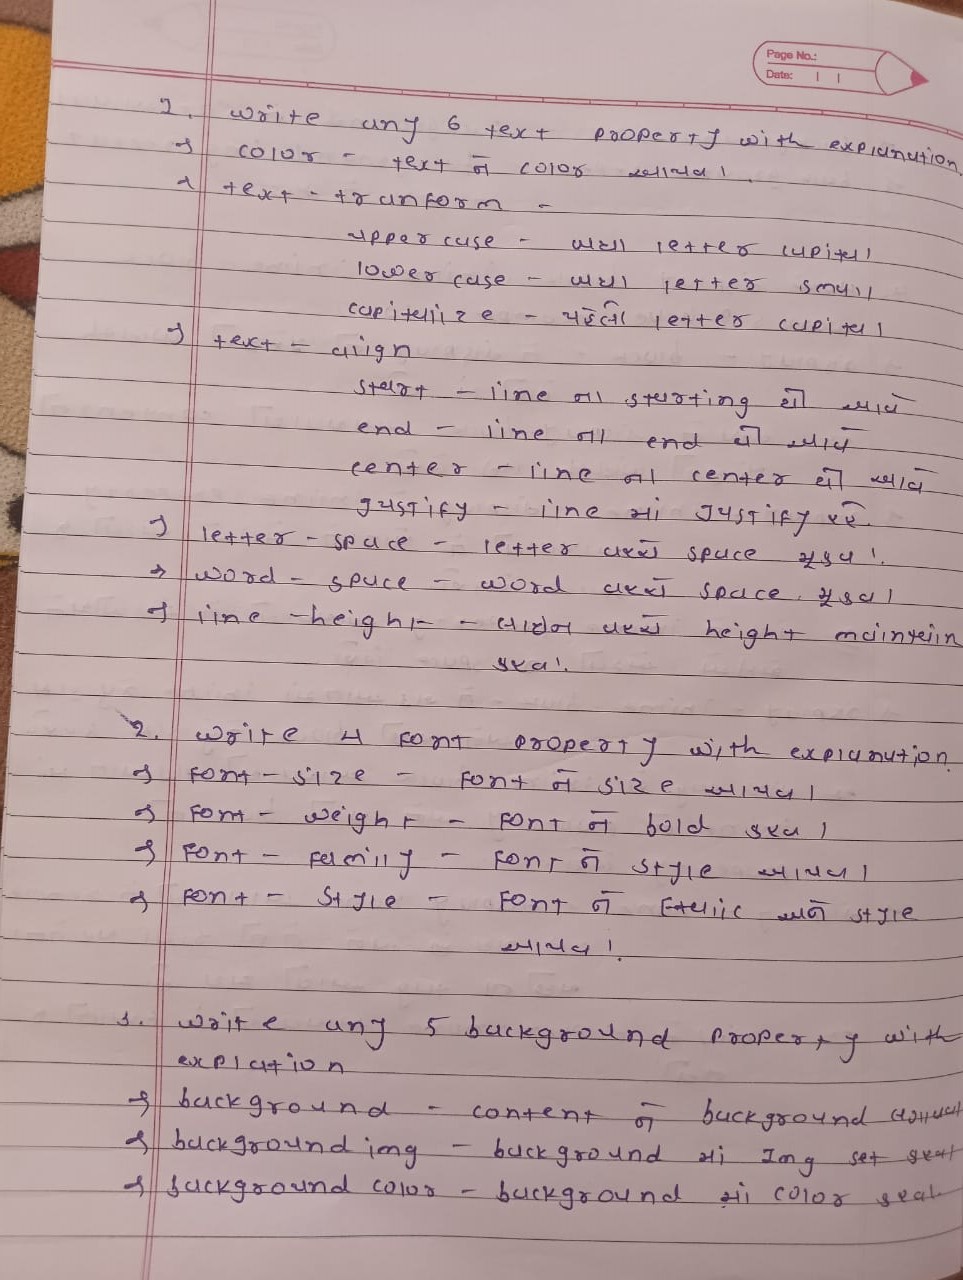 Page No.:
Date:
1. Write any 6 text property with explanation.
→ color - text ને color આપવા.
→ text - tranform -
uppercase - બધા letter capital
lowercase - બધા letter small
capitelize - પહેલા letter capital
→ text - align
start - line ના starting થી આવે
end - line ના end થી આવે
center - line ના center થી આવે
justify - line માં Justify કરે.
→ letter - space - letter વચ્ચે space મુકવા.
→ word - space - word વચ્ચે space મુકવા
→ line - height - લાઈન વચ્ચે height maintein
કરવા.
2. Write 4 font property with explanation.
→ font - size - font ને size આપવા
→ font - weight - font ને bold કરવા
→ font - family - font ને style આપવા
→ font - style - font ને Etalic અને style
આપવા.
3. Write any 5 background property with
explation
→ background - content ને background
→ background img - background માં Img set કરવા
→ background color - background માં color કરવા